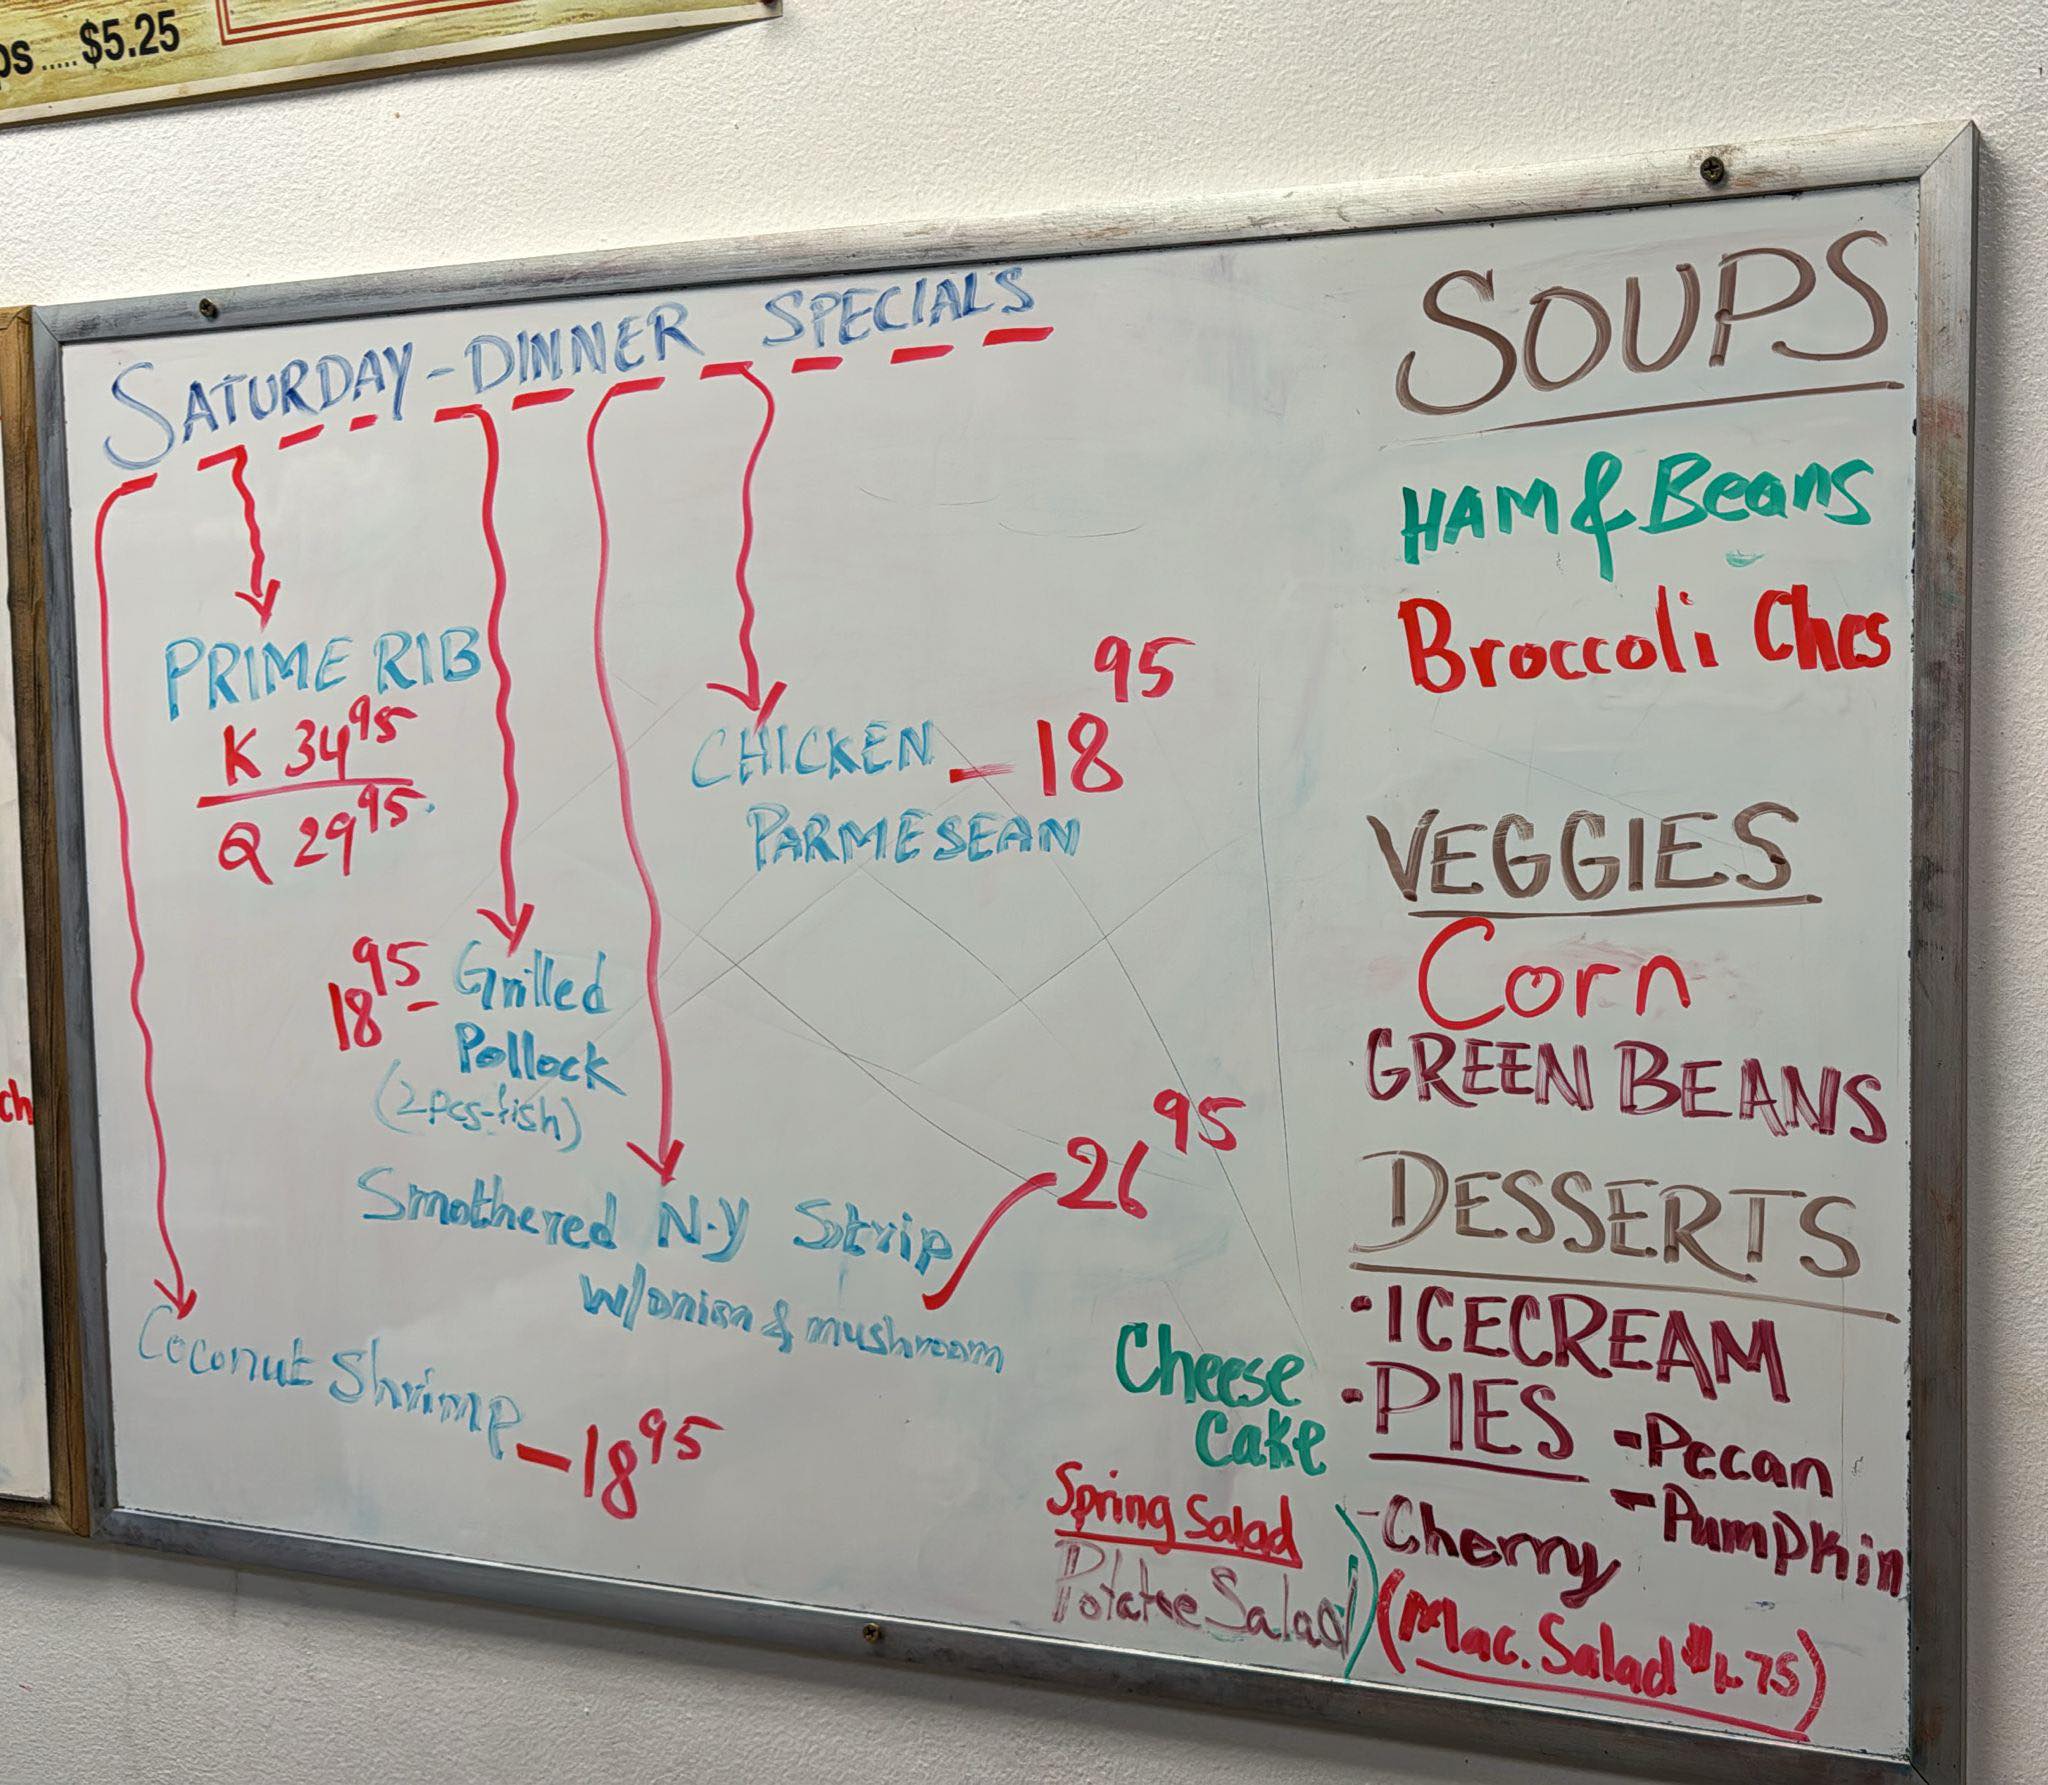 ps ..... $5.25
SATURDAY-DINNER SPECIALS
PRIME RIB
K 34 95
Q 29 95
CHICKEN - 18 95
PARMESEAN
18 95 - Grilled
Pollock
(2pcs-fish)
Smothered N.Y Strip
w/onion & mushroom
26 95
Coconut Shrimp - 18 95
SOUPS
HAM & Beans
Broccoli Ches
VEGGIES
Corn
GREEN BEANS
DESSERTS
• ICECREAM
• PIES
- Pecan
- Pumpkin
- Cherry
Cheese
Cake
Spring Salad
Potatoe Salad
(Mac. Salad $1.75)
ch